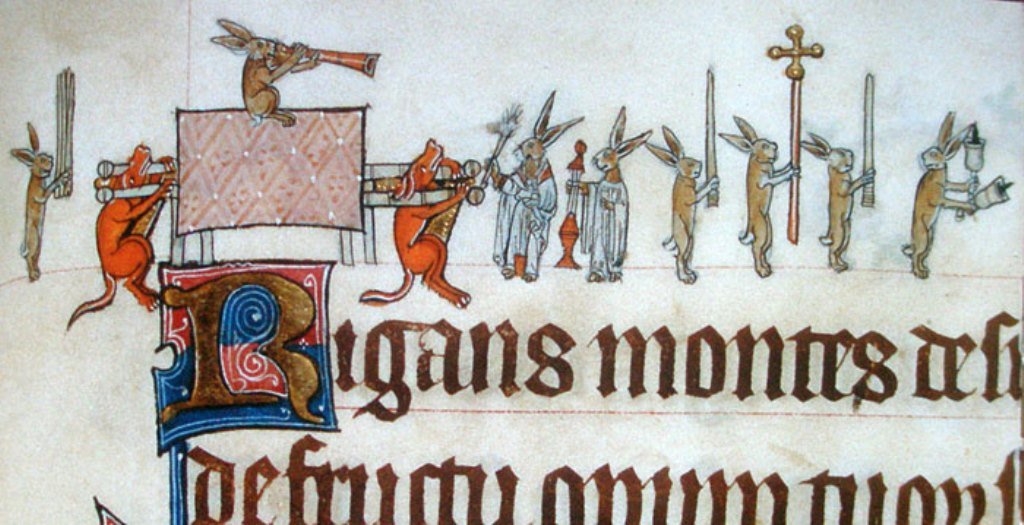 Rigans montes de su
de fructu opum tuor